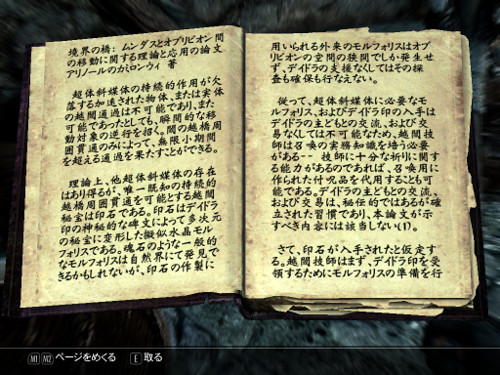 境界の橋: ムンダスとオブリビオン間
の移動に関する理論と応用の論文
アリノールのカミロンウィ 著
超体斜媒体の持続的作用が欠
落する加速された物体、または実体
の越閾通過は不可能であり、また
可能であったとしても、瞬間的な移
動対象の逆行を招く。閾の越橋周
囲貫通のみによって、無限小期間
を超える通過を果たすことができる。
理論上、他超体斜媒体の存在
はあり得るが、唯一既知の持続的
越橋周囲貫通を可能とする越閾
秘宝は印石である。印石はデイドラ
印の神秘的な碑文によって多次元
の秘宝に変形した擬似水晶モル
フォリスである。魂石のような一般的
なモルフォリスは自然界にて発見で
きるかもしれないが、印石の作製に
用いられる外来のモルフォリスはオブ
リビオンの空間の狭間でしか発生せ
ず、デイドラの支援なくしてはその探
査も確保も行なえない。
従って、超体斜媒体に必要なモ
ルフォリス、およびデイドラ印の入手は
デイドラの主どもとの交流、および交
易なくしては不可能なため、越閾技
師は召喚の実務知識を培う必要
がある-- 技師に十分な祈りに関す
る能力があるのであれば、召喚用に
作られた付呪品を代用することも可
能である。デイドラの主どもとの交流、
および交易は、秘伝的ではあるが確
立された習慣であり、本論文が示
すべき内容には該当しない(1)。
さて、印石が入手されたと仮定す
る。越閾技師はまず、デイドラ印を受
領するためにモルフォリスの準備を行
M1 M2 ページをめくる E 取る